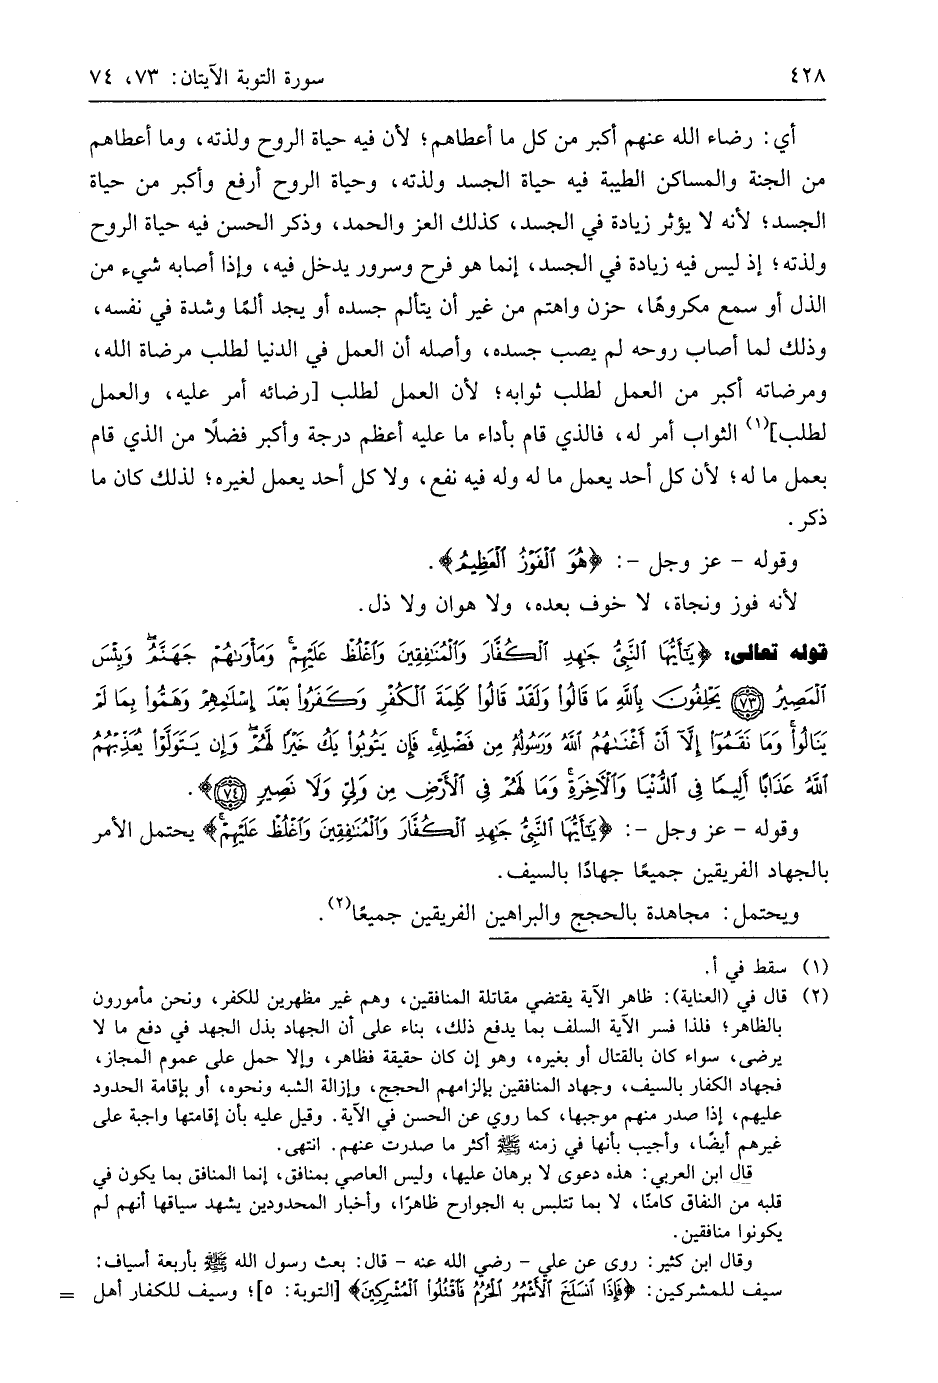 ٤٢٨ سورة التوبة الآيتان: ٧٣، ٧٤
أي: رضاء الله عنهم أكبر من كل ما أعطاهم؛ لأن فيه حياة الروح ولذته، وما أعطاهم
من الجنة والمساكن الطيبة فيه حياة الجسد ولذته، وحياة الروح أرفع وأكبر من حياة
الجسد؛ لأنه لا يؤثر زيادة في الجسد، كذلك العز والحمد، وذكر الحسن فيه حياة الروح
ولذته؛ إذ ليس فيه زيادة في الجسد، إنما هو فرح وسرور يدخل فيه، وإذا أصابه شيء من
الذل أو سمع مكروهًا، حزن واهتم من غير أن يتألم جسده أو يجد ألمًا وشدة في نفسه،
وذلك لما أصاب روحه لم يصب جسده، وأصله أن العمل في الدنيا لطلب مرضاة الله،
ومرضاته أكبر من العمل لطلب ثوابه؛ لأن العمل لطلب [رضائه أمر عليه، والعمل
لطلب](١) الثواب أمر له، فالذي قام بأداء ما عليه أعظم درجة وأكبر فضلًا من الذي قام
بعمل ما له؛ لأن كل أحد يعمل ما له وله فيه نفع، ولا كل أحد يعمل لغيره؛ لذلك كان ما
ذكر.
وقوله - عز وجل -: ﴿هُوَ ٱلْفَوْزُ ٱلْعَظِيمُ﴾.
لأنه فوز ونجاة، لا خوف بعده، ولا هوان ولا ذل.
قوله تعالى: ﴿يَٰٓأَيُّهَا ٱلنَّبِيُّ جَٰهِدِ ٱلْكُفَّارَ وَٱلْمُنَٰفِقِينَ وَٱغْلُظْ عَلَيْهِمْۚ وَمَأْوَىٰهُمْ جَهَنَّمُۖ وَبِئْسَ
ٱلْمَصِيرُ ٧٣ يَحْلِفُونَ بِٱللَّهِ مَا قَالُوا۟ وَلَقَدْ قَالُوا۟ كَلِمَةَ ٱلْكُفْرِ وَكَفَرُوا۟ بَعْدَ إِسْلَٰمِهِمْ وَهَمُّوا۟ بِمَا لَمْ
يَنَالُوا۟ۚ وَمَا نَقَمُوٓا۟ إِلَّآ أَنْ أَغْنَىٰهُمُ ٱللَّهُ وَرَسُولُهُۥ مِن فَضْلِهِۦۚ فَإِن يَتُوبُوا۟ يَكُ خَيْرًا لَّهُمْۖ وَإِن يَتَوَلَّوْا۟ يُعَذِّبْهُمُ
ٱللَّهُ عَذَابًا أَلِيمًا فِى ٱلدُّنْيَا وَٱلْءَاخِرَةِۚ وَمَا لَهُمْ فِى ٱلْأَرْضِ مِن وَلِىٍّ وَلَا نَصِيرٍ ٧٤﴾.
وقوله - عز وجل -: ﴿يَٰٓأَيُّهَا ٱلنَّبِيُّ جَٰهِدِ ٱلْكُفَّارَ وَٱلْمُنَٰفِقِينَ وَٱغْلُظْ عَلَيْهِمْۚ﴾ يحتمل الأمر
بالجهاد الفريقين جميعًا جهادًا بالسيف.
ويحتمل: مجاهدة بالحجج والبراهين الفريقين جميعًا(٢).
(١) سقط في أ.
(٢) قال في (العناية): ظاهر الآية يقتضي مقاتلة المنافقين، وهم غير مظهرين للكفر، ونحن مأمورون
بالظاهر؛ فلذا فسر الآية السلف بما يدفع ذلك، بناء على أن الجهاد بذل الجهد في دفع ما لا
يرضى، سواء كان بالقتال أو بغيره، وهو إن كان حقيقة فظاهر، وإلا حمل على عموم المجاز،
فجهاد الكفار بالسيف، وجهاد المنافقين بإلزامهم الحجج، وإزالة الشبه ونحوه، أو بإقامة الحدود
عليهم، إذا صدر منهم موجبها، كما روي عن الحسن في الآية. وقيل عليه بأن إقامتها واجبة على
غيرهم أيضًا، وأجيب بأنها في زمنه ﷺ أكثر ما صدرت عنهم. انتهى.
قال ابن العربي: هذه دعوى لا برهان عليها، وليس العاصي بمنافق، إنما المنافق بما يكون في
قلبه من النفاق كامنًا، لا بما تتلبس به الجوارح ظاهرًا، وأخبار المحدودين يشهد سياقها أنهم لم
يكونوا منافقين.
وقال ابن كثير: روى عن علي - رضي الله عنه - قال: بعث رسول الله ﷺ بأربعة أسياف:
سيف للمشركين: ﴿فَإِذَا ٱنسَلَخَ ٱلْأَشْهُرُ ٱلْحُرُمُ فَٱقْتُلُوا۟ ٱلْمُشْرِكِينَ﴾ [التوبة: ٥]؛ وسيف للكفار أهل =